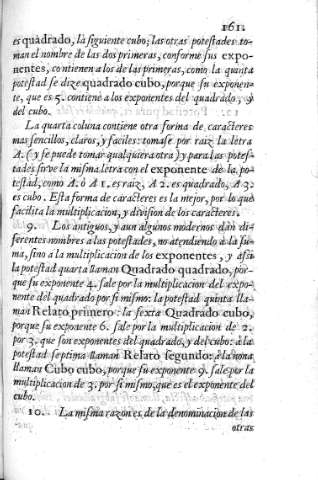 161.
es quadrado, la siguiente cubo; las otras potestades to-
man el nombre de las dos primeras, conforme sus expo-
nentes, contienen a los de las primeras, como la quinta
potestad se dize quadrado cubo, porque su exponen-
te, que es 5. contiene a los exponentes del quadrado, y
del cubo.
La quarta coluna contiene otra forma de caracteres
mas sencillos, claros, y faciles: tomase por raiz la letra
A. (y se puede tomar qualquiera otra) y para las potes-
tades sirve la misma letra con el exponente de la po-
testad, como A. ò A 1. es raiz, A 2. es quadrado, A 3:
es cubo. Esta forma de caracteres es la mejor, por lo que
facilita la multiplicacion, y division de los caracteres.
9. Los antiguos, y aun algunos modernos dàn di-
ferentes nombres a las potestades, no atendiendo à la su-
ma, sino a la multiplicacion de los exponentes, y assi
la potestad quarta llaman Quadrado quadrado, por-
que su exponente 4. sale por la multiplicacion del expo-
nente del quadrado por si mismo: la potestad quinta lla-
man Relato primero: la sexta Quadrado cubo,
porque su exponente 6. sale por la multiplicacion de 2.
por 3. que son exponentes del quadrado, y del cubo: à la
potestad septima llaman Relato segundo: à la nona
llaman Cubo cubo, porque su exponente 9. sale por la
multiplicacion de 3. por si mismo, que es el exponente del
cubo.
10. La misma razon es de la denominacion de las
otras